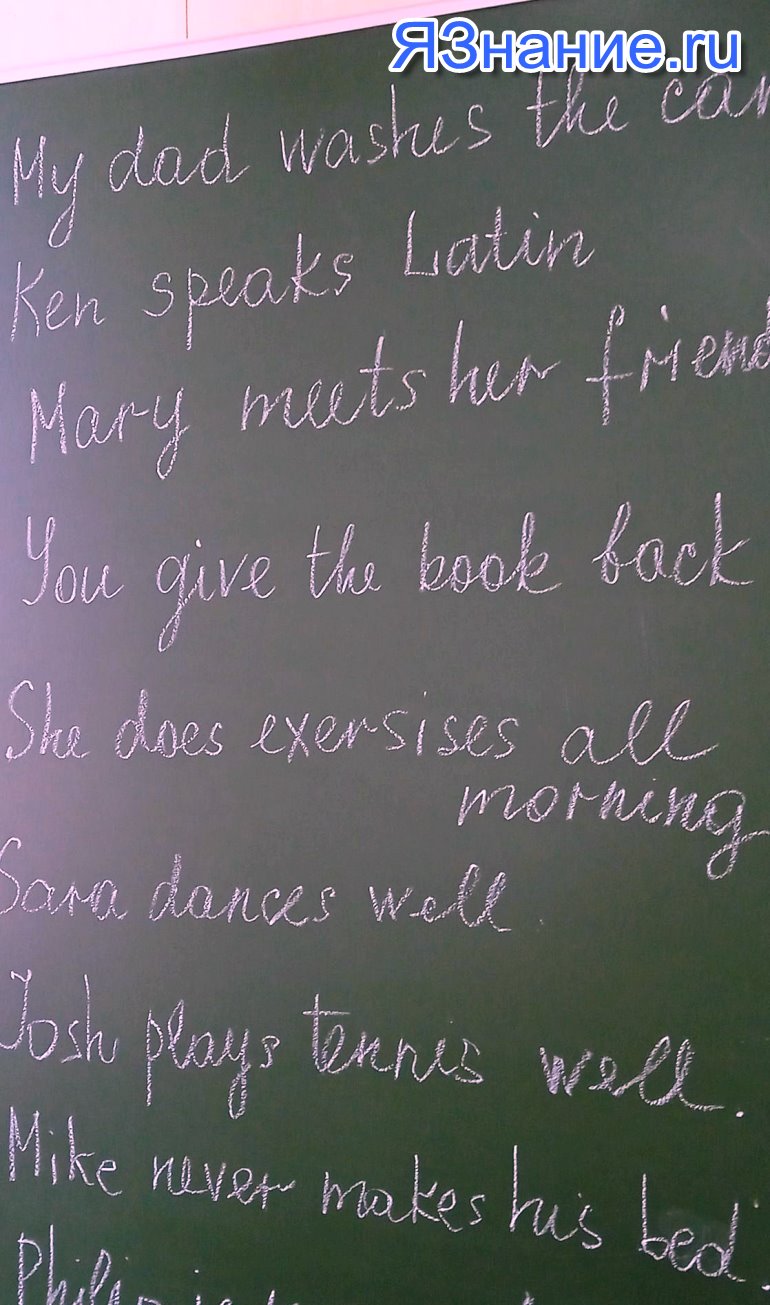 ЯЗнание.ru
My dad washes the car
Ken speaks Latin
Mary meets her friend
You give the book back
She does exersises all
morning
Sara dances well.
Josh plays tennis well.
Mike never makes his bed.